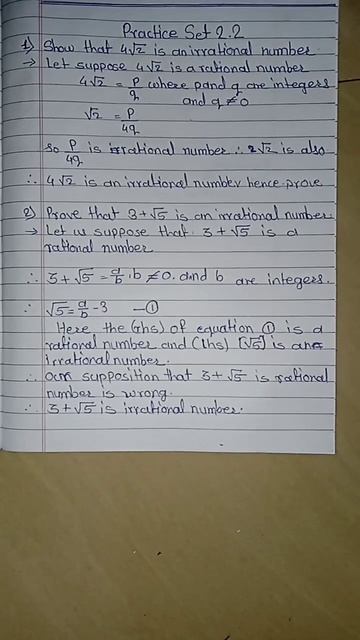 Practice Set 2.2
1) Show that 4√2 is an irrational number
→ Let suppose 4√2 is a rational number
4√2 = p/q where p and q are integers
and q ≠ 0
√2 = p/4q
so p/4q is rational number ∴ √2 is also
∴ 4√2 is an irrational number hence prove
2) Prove that 3+√5 is an irrational number.
→ Let us suppose that 3+√5 is a
rational number
∴ 3+√5 = a/b, b ≠ 0. and b are integers.
∴ √5 = a/b - 3 —①
Here the (rhs) of equation ① is a
rational number and (lhs) [√5] is an
irrational number.
∴ our supposition that 3+√5 is rational
number is wrong.
∴ 3+√5 is irrational number.